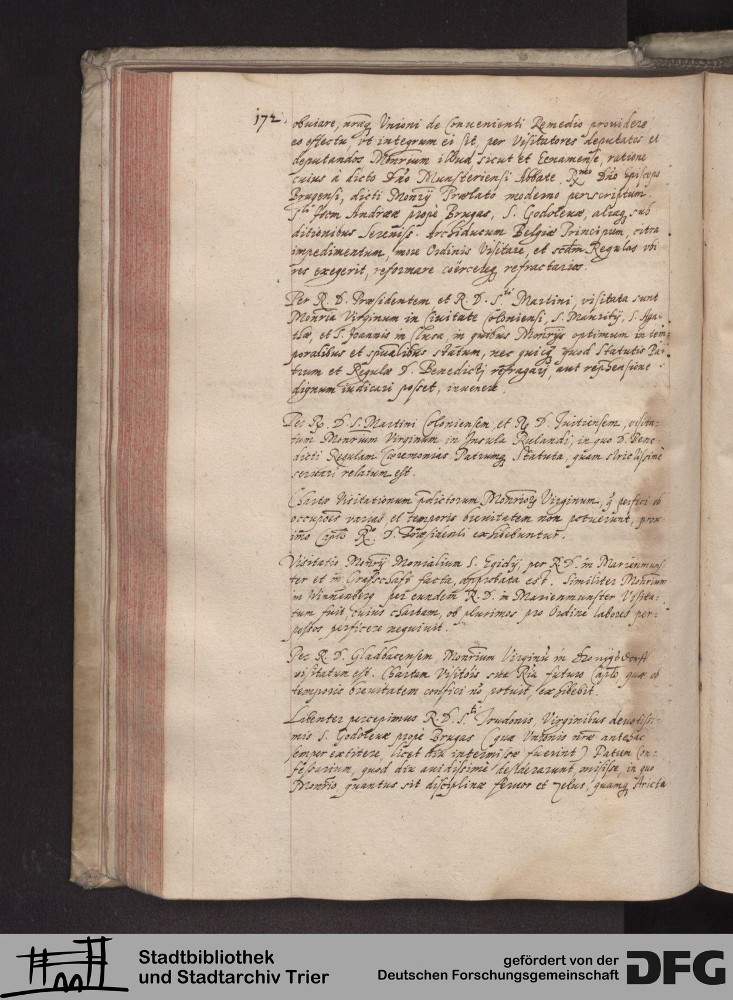 172.
obuiare, nraq Vnioni de Conuenienti Remedio prouidere
eo effectu, vt integrum ei sit, per Visitatores deputatos et
deputandos Monrium illud sicut et Eenamense, ratione
cuius à dicto Dno Munsteriensi Abbate. Rmo Dno Episcopo
Brugensi, dicti Monrij Prælato moderno perscriptum.
Andreæ propè Brugas, S. Godoleuæ, aliaq sub
ditionibus Sereniss. Archiducum Belgiæ Principum, citra
impedimentum, more Ordinis Visitare, et scdm Regulas vbi
res exegerit, reformare coërcereq refractarios.
Per R. D. Præsidentem et R. D. S.ti Martini, visitata sunt
Monria Virginum in Ciuitate Coloniensi, S. Mauritij, S. Aga-
thæ, et S. Joannis in Clusa, in quibus Monrijs optimum in tem-
poralibus et spualibus statum, nec quicq quod Statutis Pa-
trum et Regulæ D. Benedicti refragarij, aut reprehensione
dignum iudicari posset, inuenere.
Per R. D. S. Martini Coloniensem, et R. D. Tuitiensem, visita-
tum Monrium Virginum in Insula Rulandi, in quo D. Bene-
dicti Regulam Cæremonias Patrumq Statuta, quam strictissimè
seruari relatum est.
Chartæ Visitationum pdictorum Monriorum Virginum, q perfici ob
occupoes varias, et temporis breuitatem non potuerunt, prox-
imo Caplo R. D. Præsidenti exhibebuntur.
Visitatio Monrij Monialium S. Egidij, per R. D. in Marienmuns-
ter et in Grafschafft facta, approbata est. Similiter Monrium
in Winnenberg per eundem R. D. in Marienmunster Visita-
tum fuit, cuius chartam, ob plurimos pro Ordine labores per-
pessos perficere nequiuit.
Per R. D. Gladbacensem, Monrium Virginu in
visitatum est. Chartam Visitois suæ Ria futuro Caplo quæ ob
temporis breuitatem confici no potuit, exhibebit.
Libenter percepimus R. D. S.ti Trudonis, Virginibus deuotissi-
mis S. Godoleuæ propè Brugas (quæ Vnionis nræ antehac
semper extitere, licet diu intermissæ fuerint) Patrem Con-
fessarium, quod diu auidissimè desiderarunt, misisse, in quo
Monrio, quantus sit disciplinæ feruor et zelus, quamq stricta
Stadtbibliothek
und Stadtarchiv Trier
gefördert von der
Deutschen Forschungsgemeinschaft
DFG